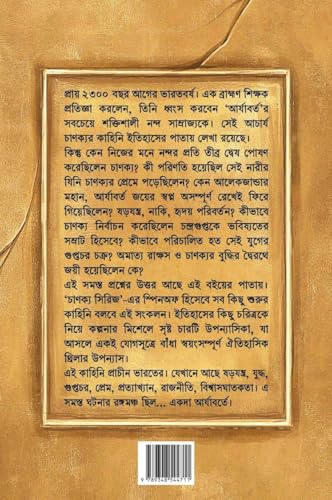 প্রায় ২৩০০ বছর আগের ভারতবর্ষ। এক ব্রাহ্মণ শিক্ষক
প্রতিজ্ঞা করলেন, তিনি ধ্বংস করবেন 'আর্যাবর্ত'র
সবচেয়ে শক্তিশালী নন্দ সাম্রাজ্যকে। সেই আচার্য
চাণক্যর কাহিনি ইতিহাসের পাতায় লেখা রয়েছে।
কিন্তু কেন নিজের মনে নন্দর প্রতি তীব্র দ্বেষ পোষণ
করেছিলেন চাণক্য? কী পরিণতি হয়েছিল সেই নারীর
যিনি চাণক্যর প্রেমে পড়েছিলেন? কেন আলেকজান্ডার
মহান, আর্যাবর্ত জয়ের স্বপ্ন অসম্পূর্ণ রেখেই ফিরে
গিয়েছিলেন? ষড়যন্ত্র, নাকি, হৃদয় পরিবর্তন? কীভাবে
চাণক্য নির্বাচন করেছিলেন চন্দ্রগুপ্তকে ভবিষ্যতের
সম্রাট হিসেবে? কীভাবে পরিচালিত হত সেই যুগের
গুপ্তচর চক্র? অমাত্য রাক্ষস ও চাণক্যর বুদ্ধির দ্বৈরথে
জয়ী হয়েছিলেন কে?
এই সমস্ত প্রশ্নের উত্তর আছে এই বইয়ের পাতায়।
'চাণক্য সিরিজ'-এর স্পিনঅফ হিসেবে সব কিছু শুরুর
কাহিনি বলবে এই সংকলন। ইতিহাসের কিছু চরিত্রকে
নিয়ে কল্পনার মিশেলে সৃষ্ট চারটি উপন্যাসিকা, যা
আসলে একই যোগসূত্রে বাঁধা স্বয়ংসম্পূর্ণ ঐতিহাসিক
থ্রিলার উপন্যাস।
এই কাহিনি প্রাচীন ভারতের। যেখানে আছে ষড়যন্ত্র, যুদ্ধ,
গুপ্তচর, প্রেম, প্রত্যাখ্যান, রাজনীতি, বিশ্বাসঘাতকতা। এ
সমস্ত ঘটনার রঙ্গমঞ্চ ছিল... একদা আর্যাবর্তে।
9 789348 544711